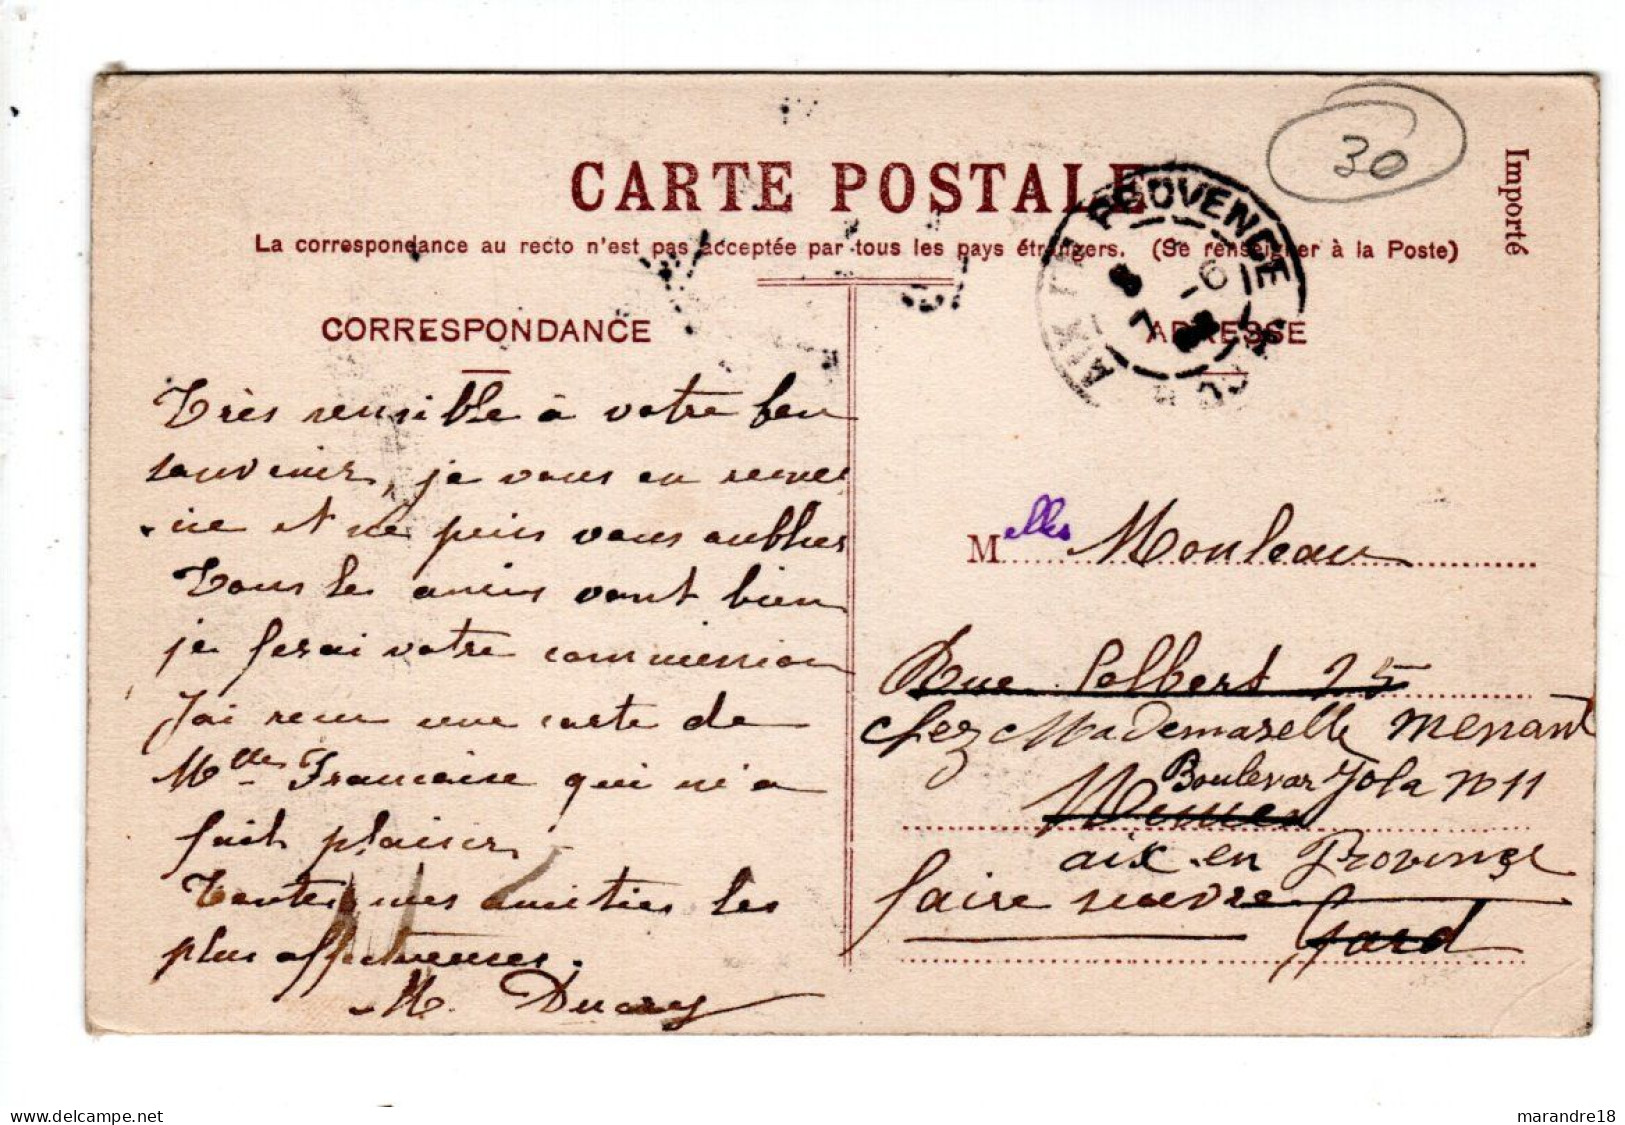 30
Importé
CARTE POSTALE
La correspondance au recto n'est pas acceptée par tous les pays étrangers. (Se renseigner à la Poste)
AIX EN PROVENCE
CORRESPONDANCE
ADRESSE
Très sensible à votre bon
souvenir, je vous en remer
-cie et ne puis vous oublier
Tous les amis vont bien
je ferai votre commission
J'ai reçu une carte de
Melle Francaise qui m'a
fait plaisir
Toutes mes amitiés les
plus affectueuses.
M. Ducroy
Melles Mouleau
Rue Colbert 25
chez Mademaselle menant
Boulevar Zola no 11
Nimes
aix en Provence
faire suivre
Gard
marandre18